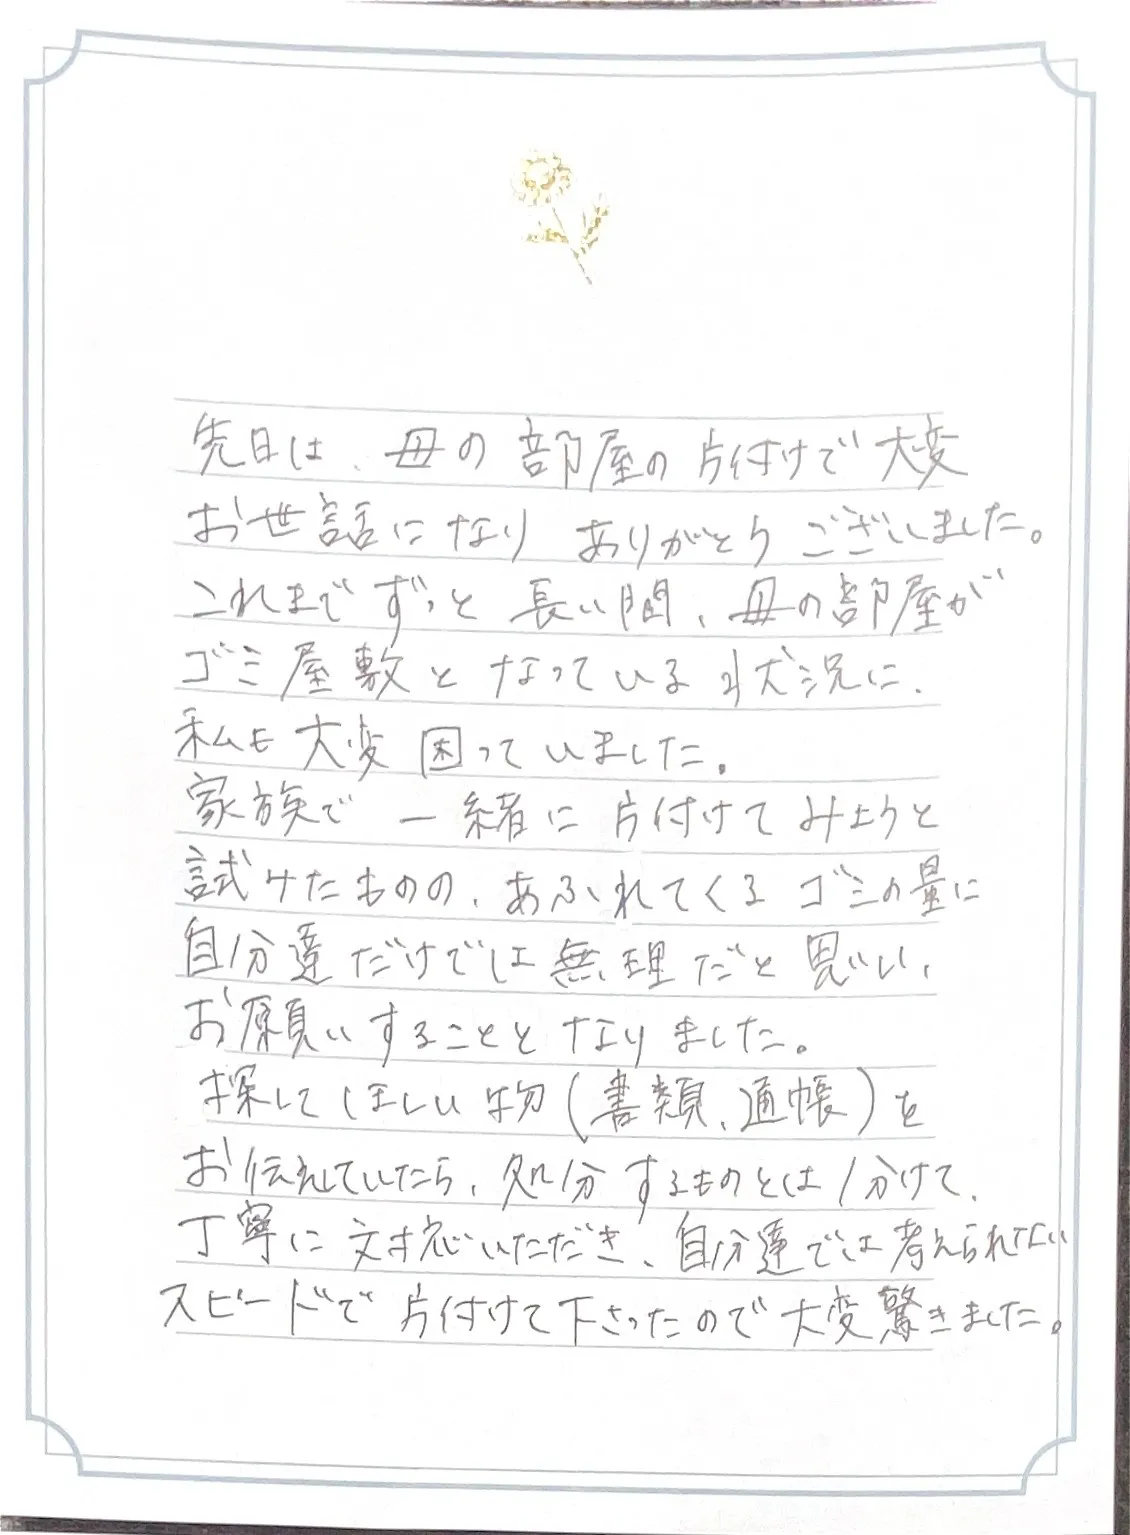 先日は、母の部屋の片付けで大変
お世話になり ありがとう ございました。
これまでずっと 長い間、母の部屋が
ゴミ屋敷となっている状況に、
私も大変困っていました。
家族で一緒に片付けてみようと
試みたものの、あふれてくるゴミの量に
自分達だけでは無理だと思い、
お願いすることとなりました。
探してほしい物(書類、通帳)を
お伝えしていたら、処分するものとは分けて、
丁寧に対応いただき、自分達では考えられない
スピードで片付けて下さったので大変驚きました。